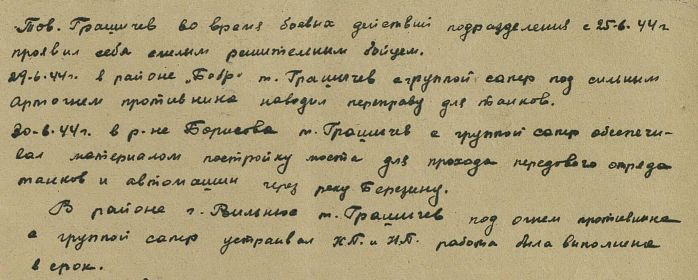 Тов. Грашичев во время боевых действий подразделения с 25-6.44г
проявил себя смелым решительным бойцем.
29-6.44г. в районе „Бобр" т. Грашичев с группой сапер под сильным
артогнем противника наводил переправу для танков.
30-6.44г. в р-не Борисова т. Грашичев с группой сапер обеспечи-
вал материалом постройку моста для прохода передового отряда
танков и автомашин через реку Березину.
В районе г. Вильнюс т. Грашичев под огнем противника
с группой сапер устраивал К.П. и Н.П. работа была выполнена
в срок.